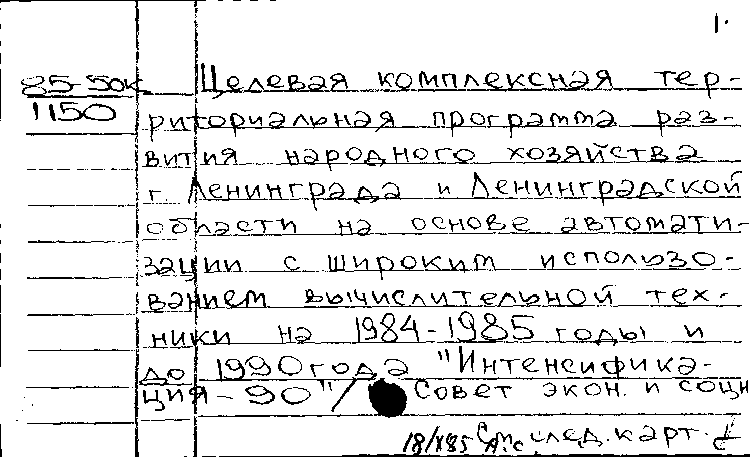 1.
85-50к Целевая комплексная тер-
1150
риториальная программа раз-
вития народного хозяйства
г Ленинграда и Ленинградской
области на основе автомати-
зации с широким использо-
ванием вычислительной тех-
ники на 1984-1985 годы и
до 1990 года "Интенсифика-
ция-90"/ Совет экон. и соци
18/X85 См. след. карт.